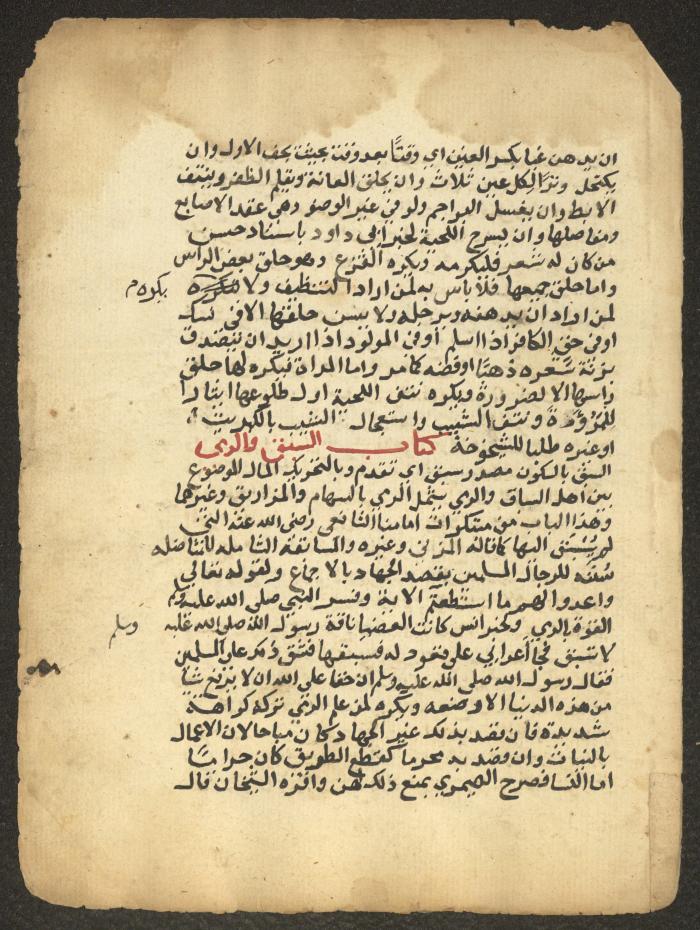 ان يدهن غبا بكسر الغين اي وقتًا بعد وقت بحيث يجف الاول وان
يكتحل وترًا لكل عين ثلاث وان يحلق العانة ويقلم الظفر وينتف
الابط وان يغسل البراجم ولو في غير الوضو وهي عقد الاصابع
ومفاصلها وان يسرح اللحية لخبر ابي داود باسناد حسن
من كان له شعر فليكرمه ويكره القزع وهو حلق بعض الراس
واما حلق جميعها فلا باس به لمن اراد التنظيف ولا
يكره م
لمن اراد ان يدهنه ويرجله ولا يسن حلقها الا في نسك
او في حق الكافر اذا اسلم او في المولود اذا اريد ان يتصدق
بزنة شعره ذهبًا او فضه كما مر واما المراة فيكره لها حلق
راسها الا لضرورة ويكره نتف اللحية اول طلوعها ايثارا
للمرودة ونتف الشيب واستعجال الشيب بالكبريت
او غيره طلبا للشيخوخة كتاب السبق والرمي
السبق بالسكون مصدر سبق اي تقدم وبالتحريك المال الموضوع
بين اهل السباق والرمي يشمل الرمي بالسهام والمزاريق وغيرهما
وهذا الباب من مبتكرات امامنا الشافعي رضي الله عنه التي
لم يسبق اليها كما قاله المزني وغيره والمسابقة الشاملة للمناضله
سنة للرجال المسلمين بقصد الجهاد بالاجماع ولقوله تعالي
واعدوا لهم ما استطعتم الاية وفسر النبي صلى الله عليه وسلم
القوة بالرمي ولخبر انس كانت العضبا ناقة رسول الله صلى الله عليه
وسلم
لا تسبق فجا اعرابي على قعود له فسبقها فشق ذلك على المسلمين
فقال رسول الله صلى الله عليه وسلم ان حقا على الله ان لا يرفع شيا
من هذه الدنيا الا وضعه ويكره لمن علم الرمي تركه كراهة
شديدة فان قصد بذلك غير الجهاد كان مباحا لان الاعمال
بالنيات وان قصد به محرما كقطع الطريق كان حراما
اما النسا فصرح الصيمري بمنع ذلك لهن واقره الشيخان قال